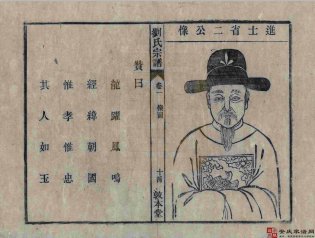 進士省二公像
劉氏宗譜
卷一
十四
敦本堂
贊曰
龍躍鳳鳴
經緯朝國
惟孝惟忠
其人如玉